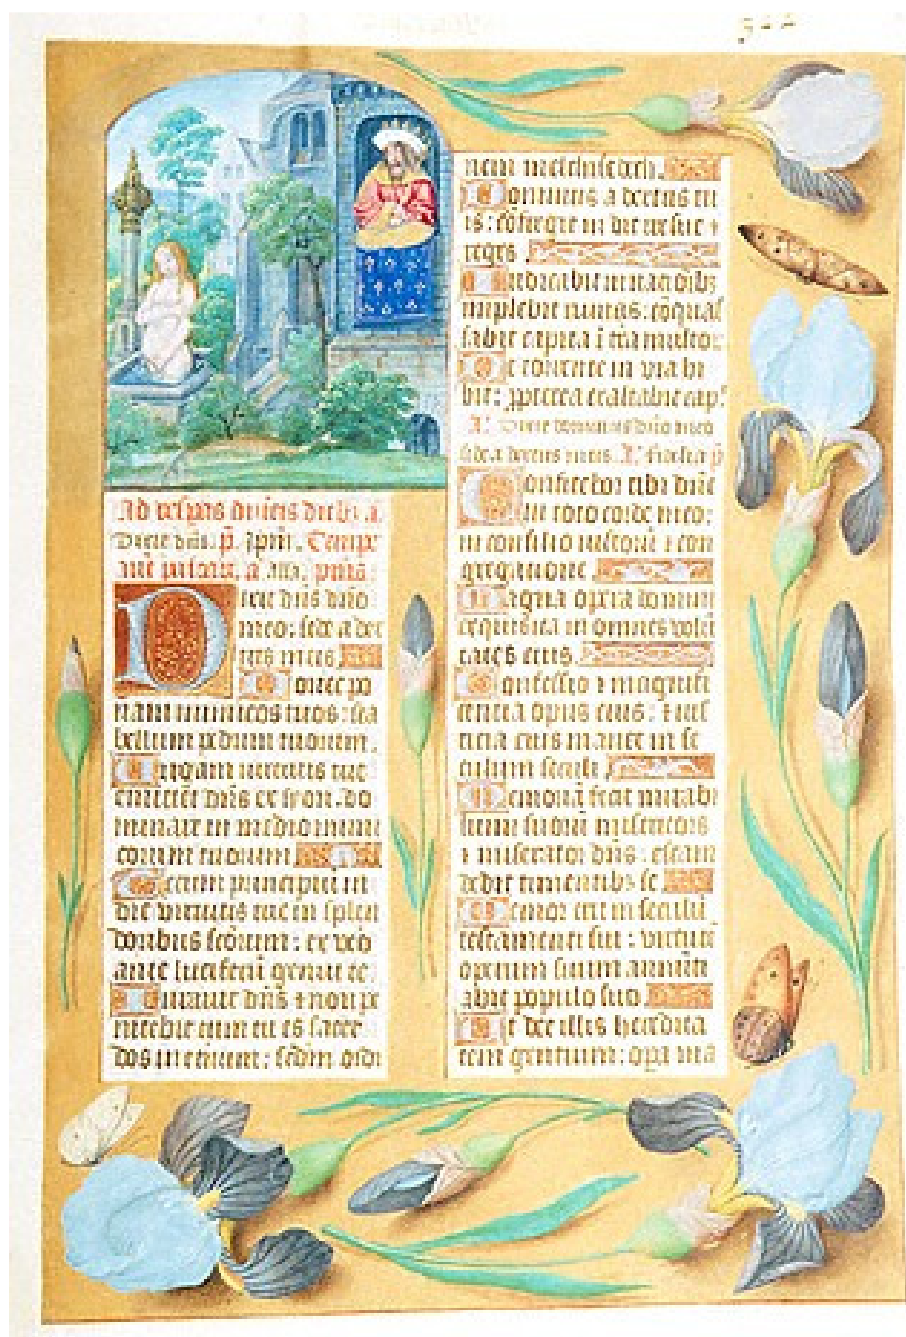 Ad vesperas
Dixit dñs
D ixit dñs dño
meo: sede a dex
tris meis
Donec po
nam inimicos tuos: sca
bellum pedum tuorum.
Virgam virtutis tue
emittet dñs ex syon. do
minare in medio inimi
corum tuorum
Tecum principium in
die virtutis tue in splen
doribus scõrum: ex vtō
ante luciferū genui te.
Iurauit dñs ⁊ non pe
nitebit eum tu es sacer
dos in eternum: scdm ordi
nem melchisedech.
Dominus a dextris tu
is: cõfregit in die ire sue
reges
Iudicabit in nationibz
implebit ruinas: cõquas
sabit capita ī tr̄a multor.
De torrente in via bi
bit: ppterea exaltabit cap.
Dixit dominus dño meo
sede a dextris meis. Fidelia
Confitebor tibi dñe
in toto corde meo:
in consilio iustorū ⁊ con
gregatione
Magna opera domini
exquisita in omnes volū
tates eius.
Confessio ⁊ magnifi
centia opus eius: ⁊ ius
ticia eius manet in se
culum seculi
Memoriā fecit mirabi
lium suorū misericors
⁊ miserator dñs: escam
dedit timentibz se
Memor erit in seculū
testamenti sui: virtutē
operum suorum annūti
abit populo suo
Ut det illis heredita
tem gentium: opa ma